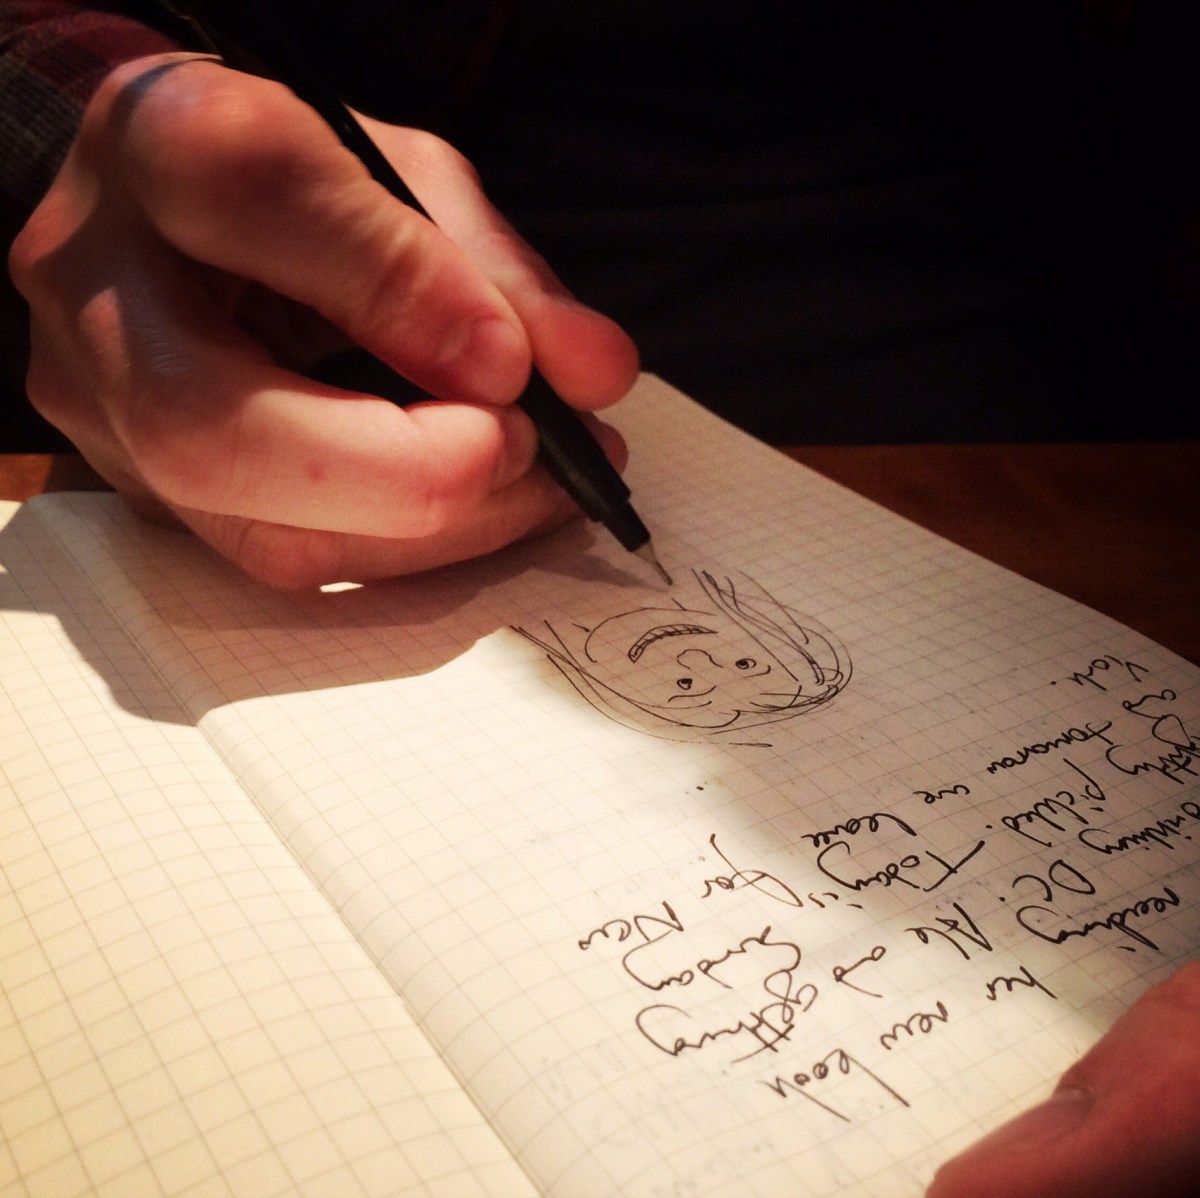 reading her new book
drinking DC. Ale and getting
slightly pickled. Today is Sunday
and tomorrow we leave for New
York.